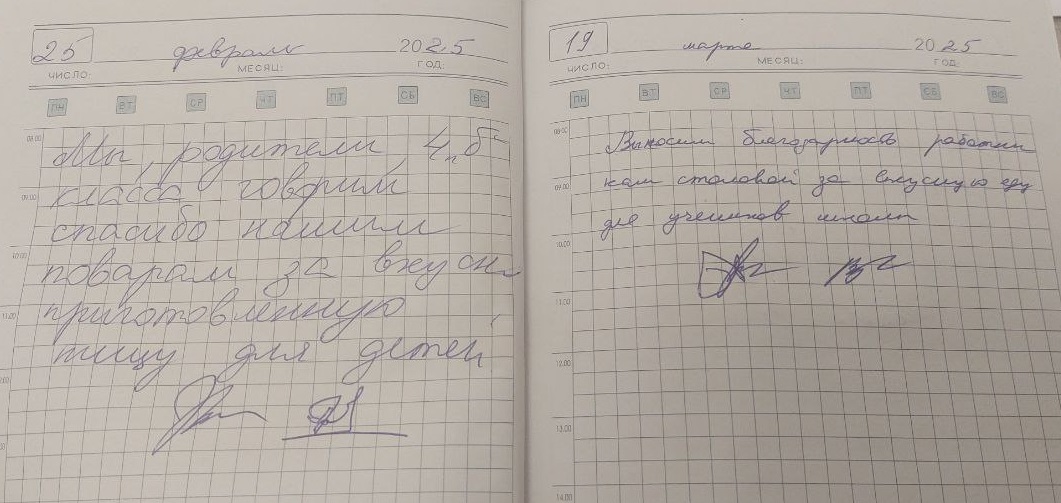 25 февраль 2025
ЧИСЛО: МЕСЯЦ: ГОД:
ПН ВТ СР ЧТ ПТ СБ ВС
08.00
Мы, родители, 4 "б"
09.00
класса говорим
спасибо нашим
10.00
поварам за вкусно
11.00
приготовленную
пищу для детей
19 марта 2025
ЧИСЛО: МЕСЯЦ: ГОД:
ПН ВТ СР ЧТ ПТ СБ ВС
08.00
Выносим благодарность работни
09.00
кам столовой за вкусную еду
для учеников школы
10.00
11.00
12.00
13.00
14.00